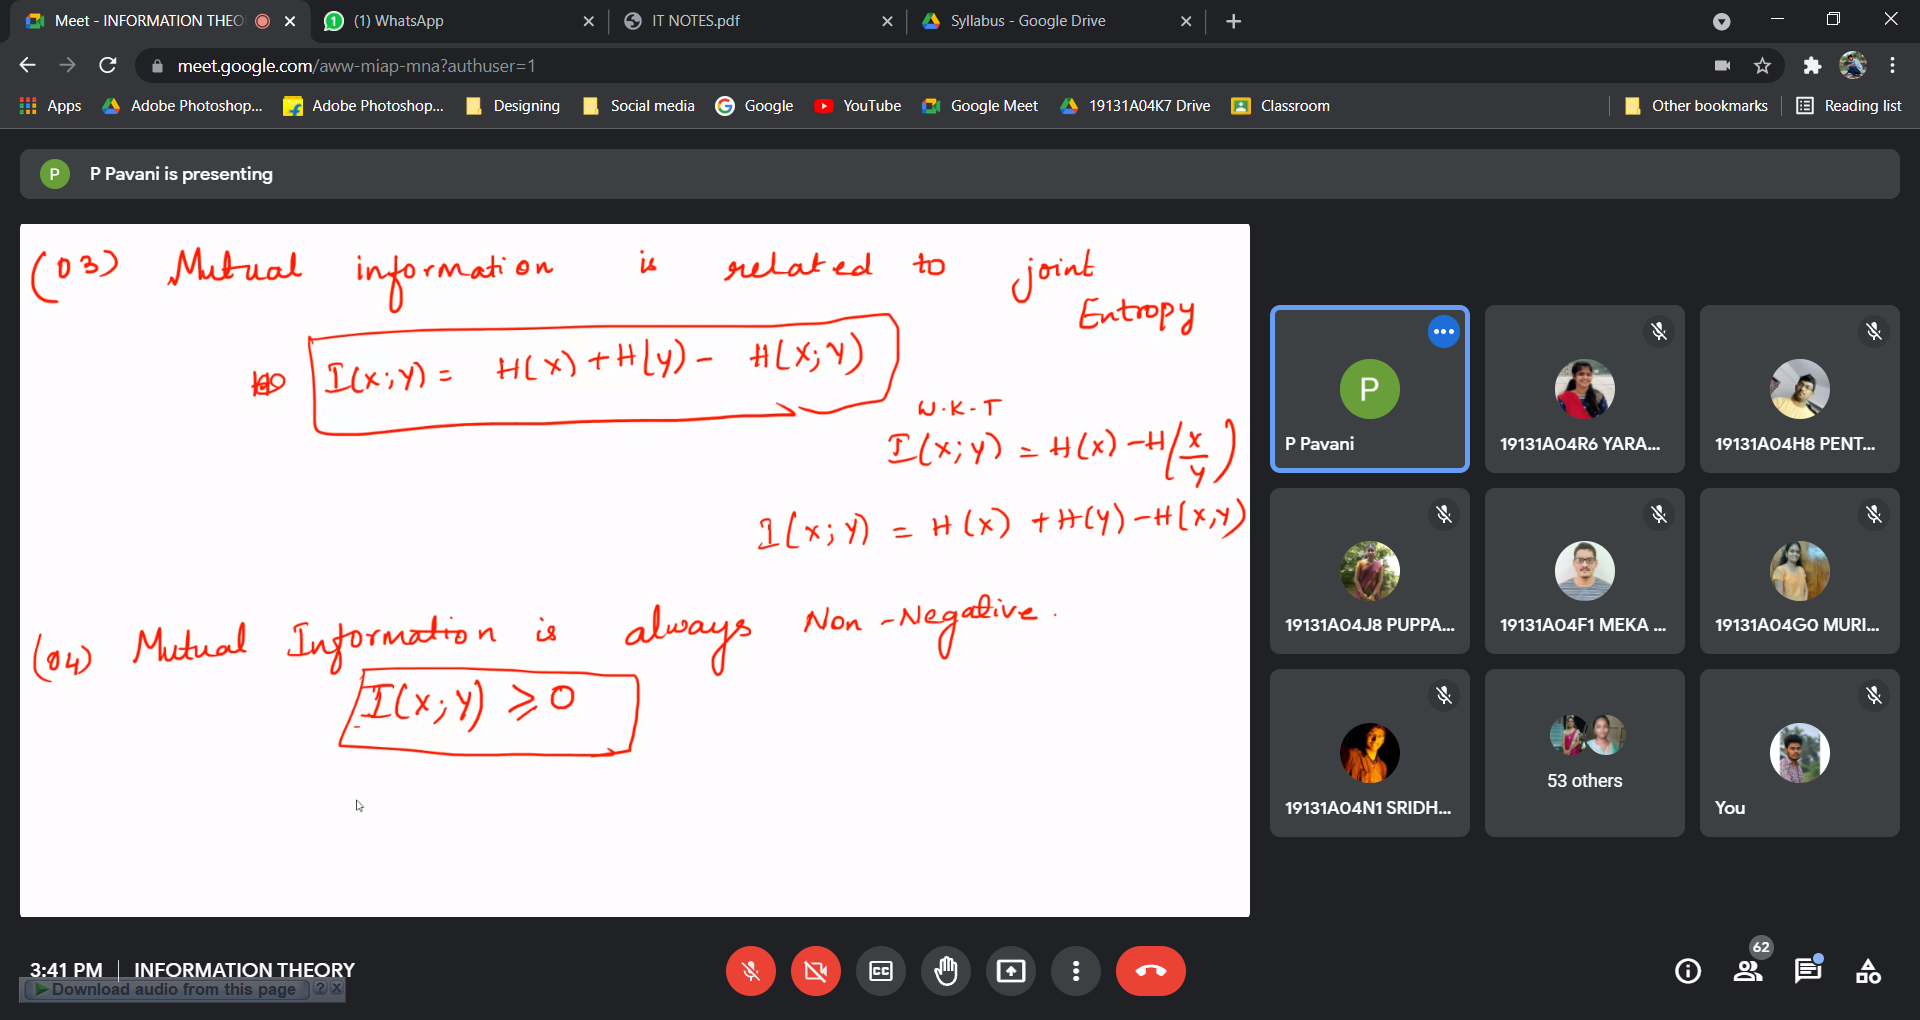 Meet - INFORMATION THEO
(1) WhatsApp
IT NOTES.pdf
Syllabus - Google Drive
meet.google.com/aww-miap-mna?authuser=1
Apps
Adobe Photoshop...
Adobe Photoshop...
Designing
Social media
Google
YouTube
Google Meet
19131A04K7 Drive
Classroom
Other bookmarks
Reading list
P
P Pavani is presenting
(03) Mutual information is related to joint
Entropy
I(x;y) = H(x) + H(y) - H(x;y)
W.K.T
I(x;y) = H(x) - H(x/y)
I(x;y) = H(x) + H(y) - H(x,y)
(04) Mutual Information is always Non-Negative.
I(x;y) ⩾ 0
P
P Pavani
19131A04R6 YARA...
19131A04H8 PENT...
19131A04J8 PUPPA...
19131A04F1 MEKA ...
19131A04G0 MURI...
19131A04N1 SRIDH...
53 others
You
3:41 PM | INFORMATION THEORY
Download audio from this page ? X
CC
62